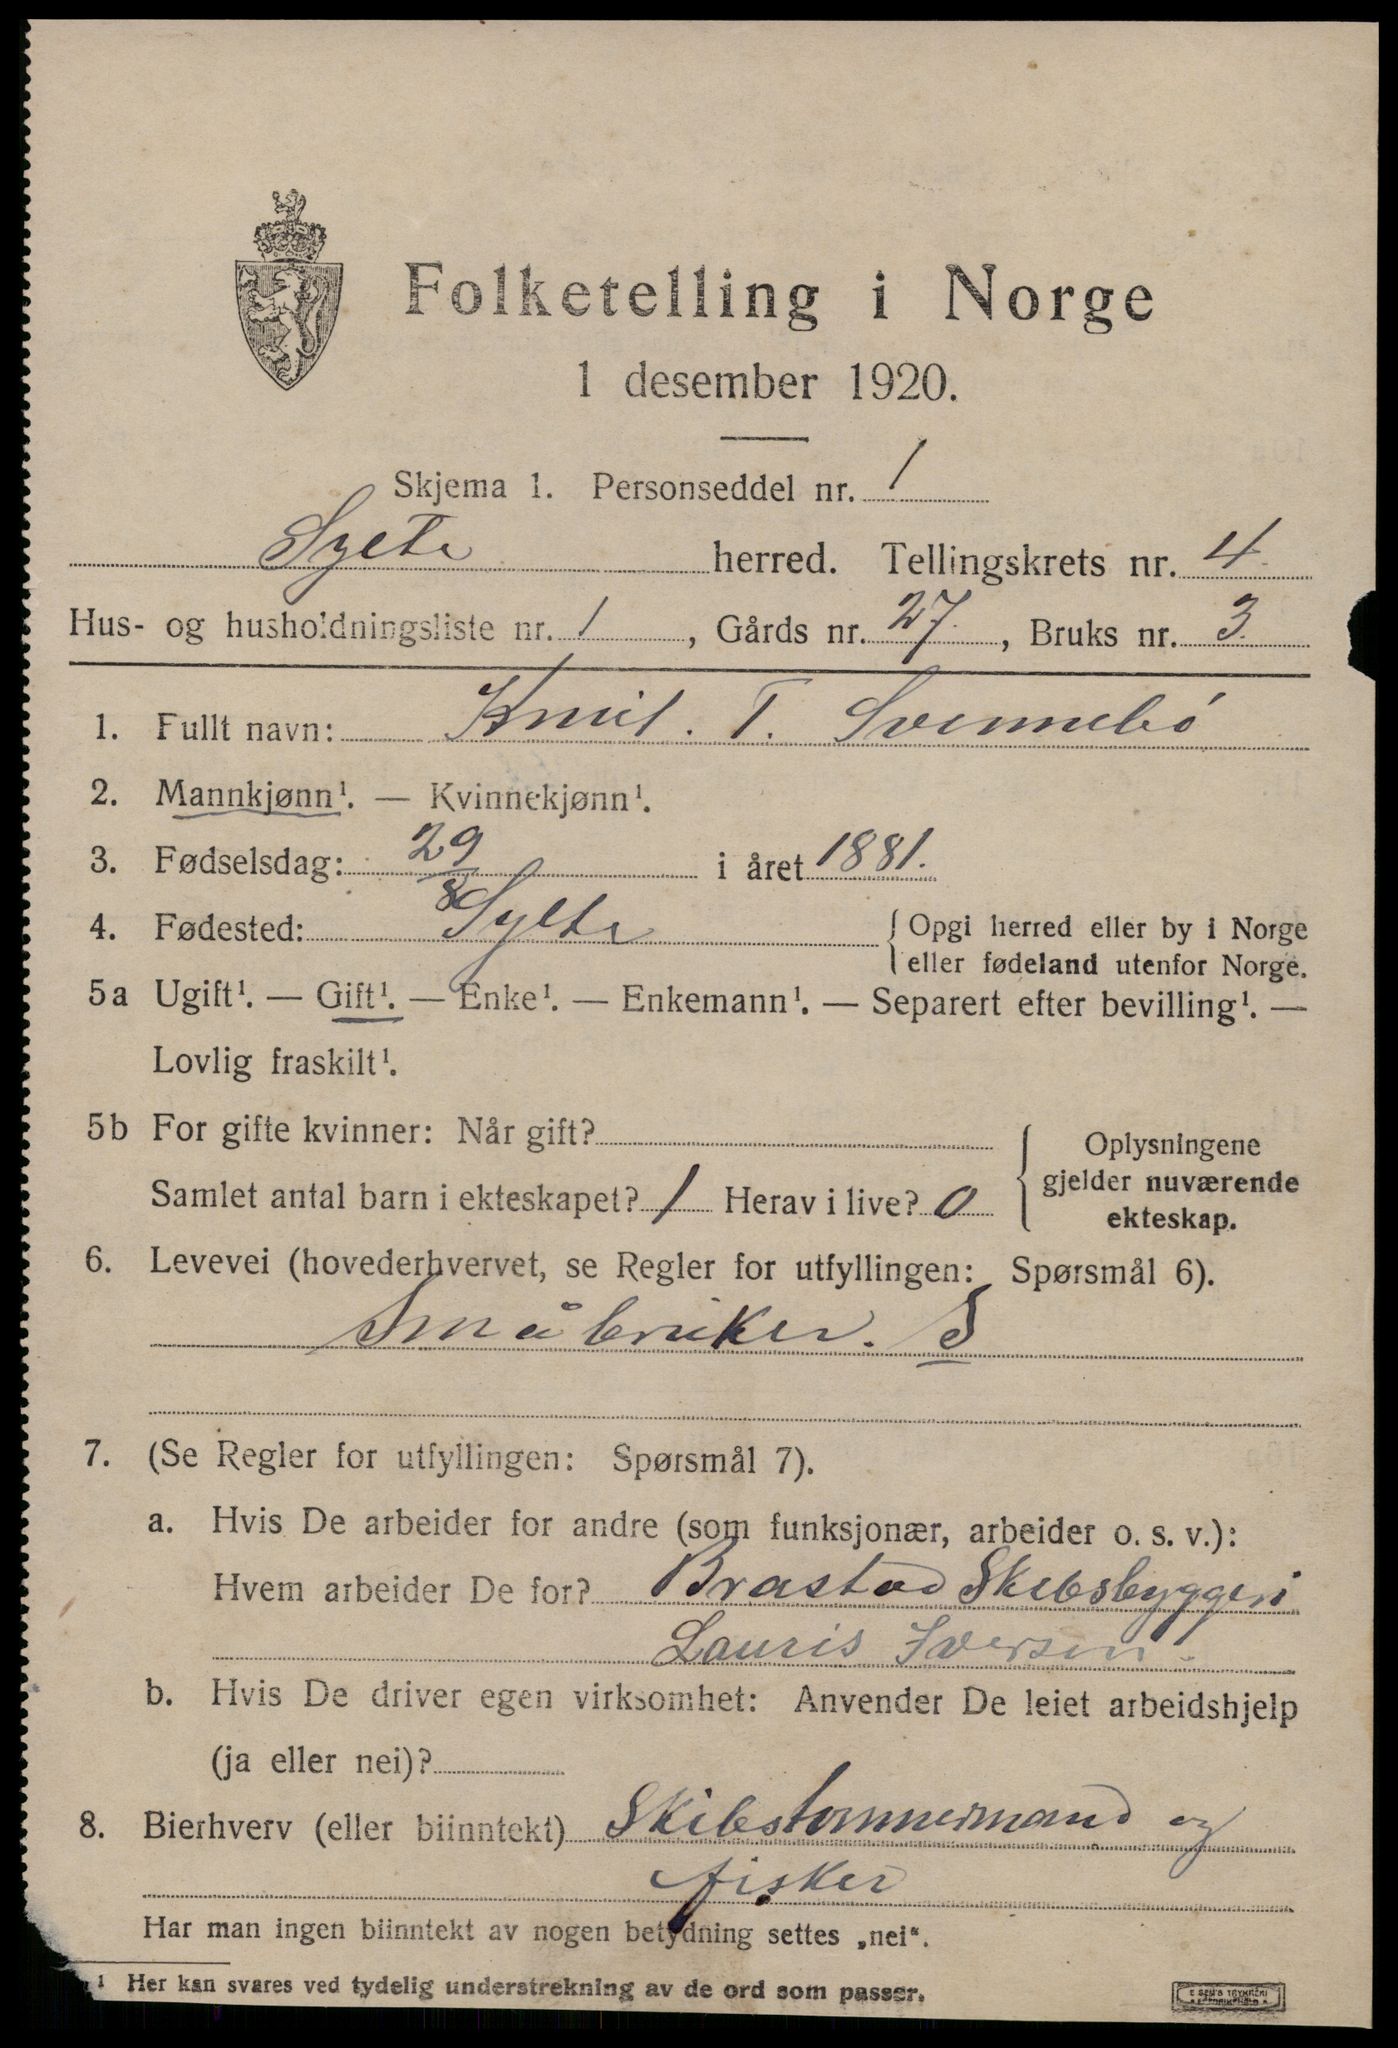 Folketelling i Norge
1 desember 1920.
Skjema 1. Personseddel nr. 1
Sylte herred. Tellingskrets nr. 4
Hus- og husholdningsliste nr. 1, Gårds nr. 27, Bruks nr. 3.
1. Fullt navn: Knut. T. Svennebö
2. Mannkjønn¹. — Kvinnekjønn¹.
3. Fødselsdag: 29/8 i året 1881.
4. Fødested: Sylte { Opgi herred eller by i Norge
eller fødeland utenfor Norge.
5a Ugift¹. — Gift¹. — Enke¹. — Enkemann¹. — Separert efter bevilling¹. —
Lovlig fraskilt¹.
5b For gifte kvinner: Når gift? { Oplysningene
gjelder nuværende
Samlet antal barn i ekteskapet? 1 Herav i live? 0
ekteskap.
6. Levevei (hovederhvervet, se Regler for utfyllingen: Spørsmål 6).
Småbruker. S
7. (Se Regler for utfyllingen: Spørsmål 7).
a. Hvis De arbeider for andre (som funksjonær, arbeider o. s. v.):
Hvem arbeider De for? Brastad Skibsbyggeri
Lauris Iversen.
b. Hvis De driver egen virksomhet: Anvender De leiet arbeidshjelp
(ja eller nei)?
8. Bierhverv (eller biinntekt) Skibstømmermand og
fisker
Har man ingen biinntekt av nogen betydning settes „nei“.
¹ Her kan svares ved tydelig understrekning av de ord som passer.